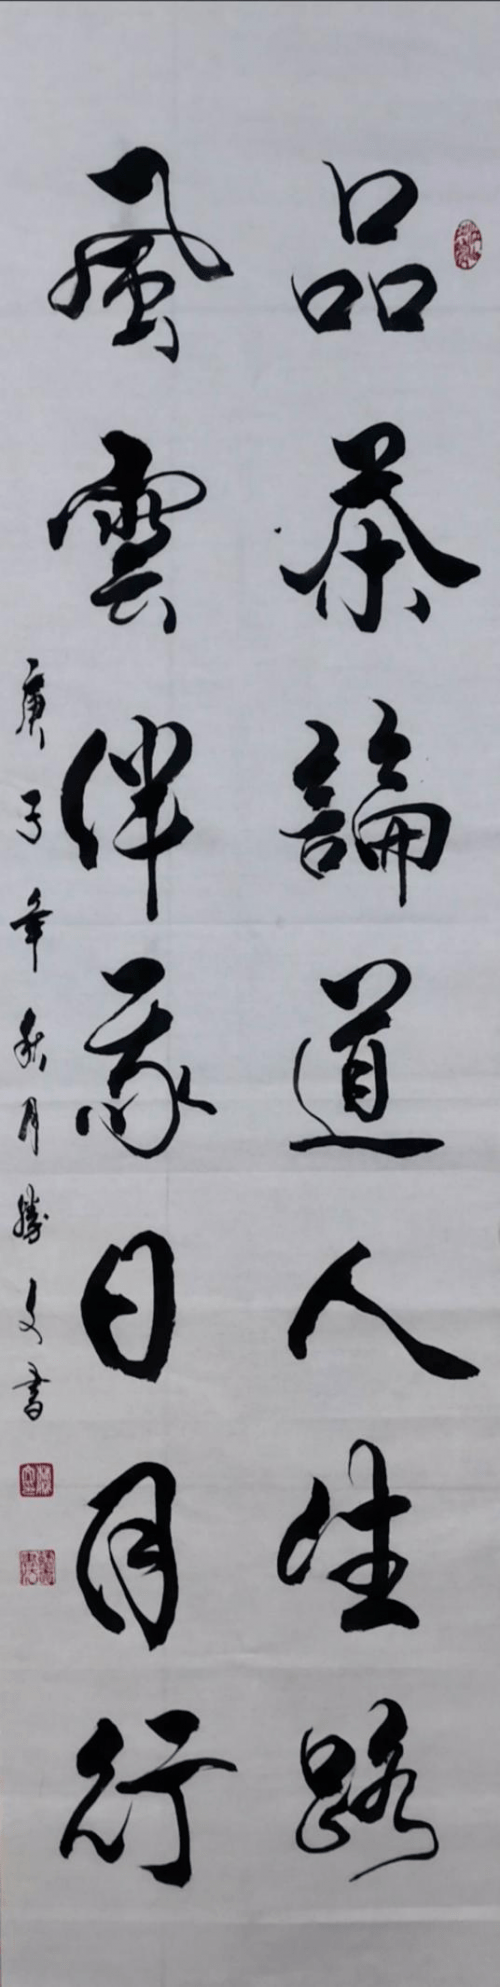 品茶論道人生路
風雲伴我日月行
庚子年秋月勝文書